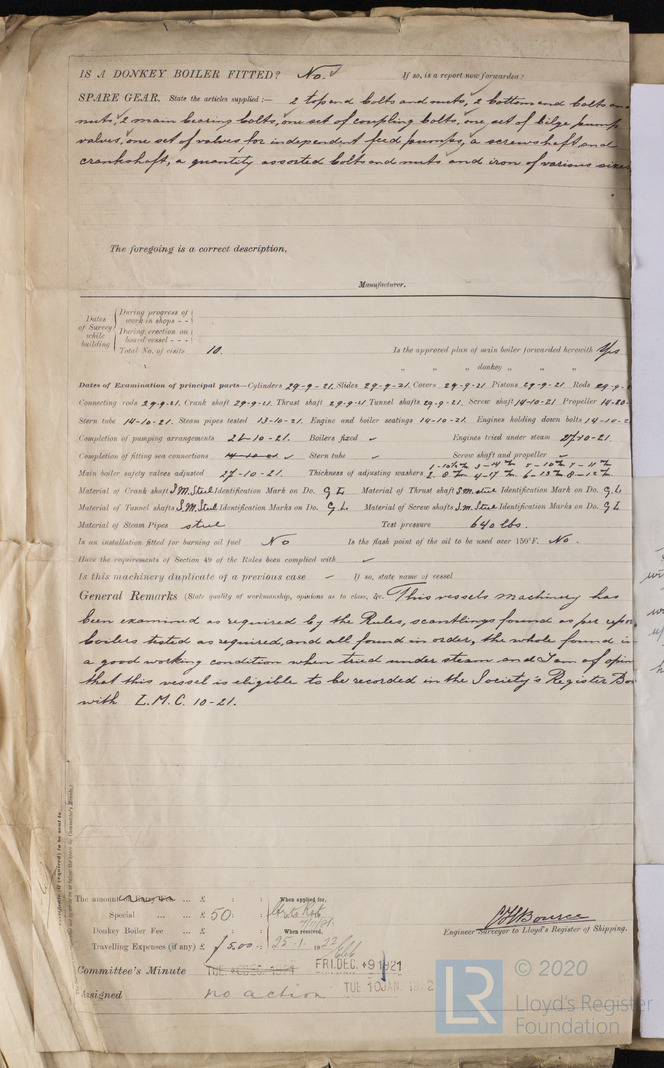 IS A DONKEY BOILER FITTED? No. If so, is a report now forwarded?
SPARE GEAR. State the articles supplied:— 2 top end bolts and nuts, 2 bottom end bolts an
nuts, 2 main bearing bolts, one set of coupling bolts, one set of bilge pump
valves, one set of valves for independent feed pumps, a screwshaft and
crankshaft, a quantity assorted bolts and nuts and iron of various sizes
The foregoing is a correct description,
Manufacturer.
Dates of Survey while building
During progress of work in shops - -
During erection on board vessel - - -
Total No. of visits 10.
Is the approved plan of main boiler forwarded herewith Yes
" " " donkey " " "
Dates of Examination of principal parts—Cylinders 29-9-21. Slides 29-9-21. Covers 29-9-21 Pistons 29-9-21 Rods 29-9-
Connecting rods 29-9-21. Crank shaft 29-9-21. Thrust shaft 29-9-21 Tunnel shafts 29-9-21. Screw shaft 14-10-21 Propeller 14-
Stern tube 14-10-21. Steam pipes tested 13-10-21. Engine and boiler seatings 14-10-21. Engines holding down bolts 14-10-2
Completion of pumping arrangements 26-10-21. Boilers fixed ✓ Engines tried under steam 27-10-21.
Completion of fitting sea connections ✓ Stern tube ✓ Screw shaft and propeller ✓
Main boiler safety valves adjusted 27-10-21. Thickness of adjusting washers
Material of Crank shaft S.M. Steel Identification Mark on Do. G.L. Material of Thrust shaft S.M. steel Identification Mark on Do. G.L.
Material of Tunnel shafts S.M. Steel Identification Marks on Do. G.L. Material of Screw shafts S.M. Steel Identification Marks on Do. G.L
Material of Steam Pipes steel Test pressure 640 lbs.
Is an installation fitted for burning oil fuel No Is the flash point of the oil to be used over 150°F. No.
Have the requirements of Section 49 of the Rules been complied with ✓
Is this machinery duplicate of a previous case ✓ If so, state name of vessel
General Remarks (State quality of workmanship, opinions as to class, &c. This vessels machinery has
been examined as required by the Rules, scantlings found as per repor
boilers tested as required, and all found in order, the whole found in
a good working condition when tried under steam and I am of opin
that this vessel is eligible to be recorded in the Society's Register Boo
with L.M.C. 10-21.
The amount ... £ : : When applied for,
Special ... ... £ 50 : :
Donkey Boiler Fee ... £ : : When received,
Travelling Expenses (if any) £ 25.1.1922
Engineer Surveyor to Lloyd's Register of Shipping.
Committee's Minute FRI. DEC. 9 1921
TUE 10 JAN. 1922
Assigned no action
LR
© 2020
Lloyd's Register
Foundation